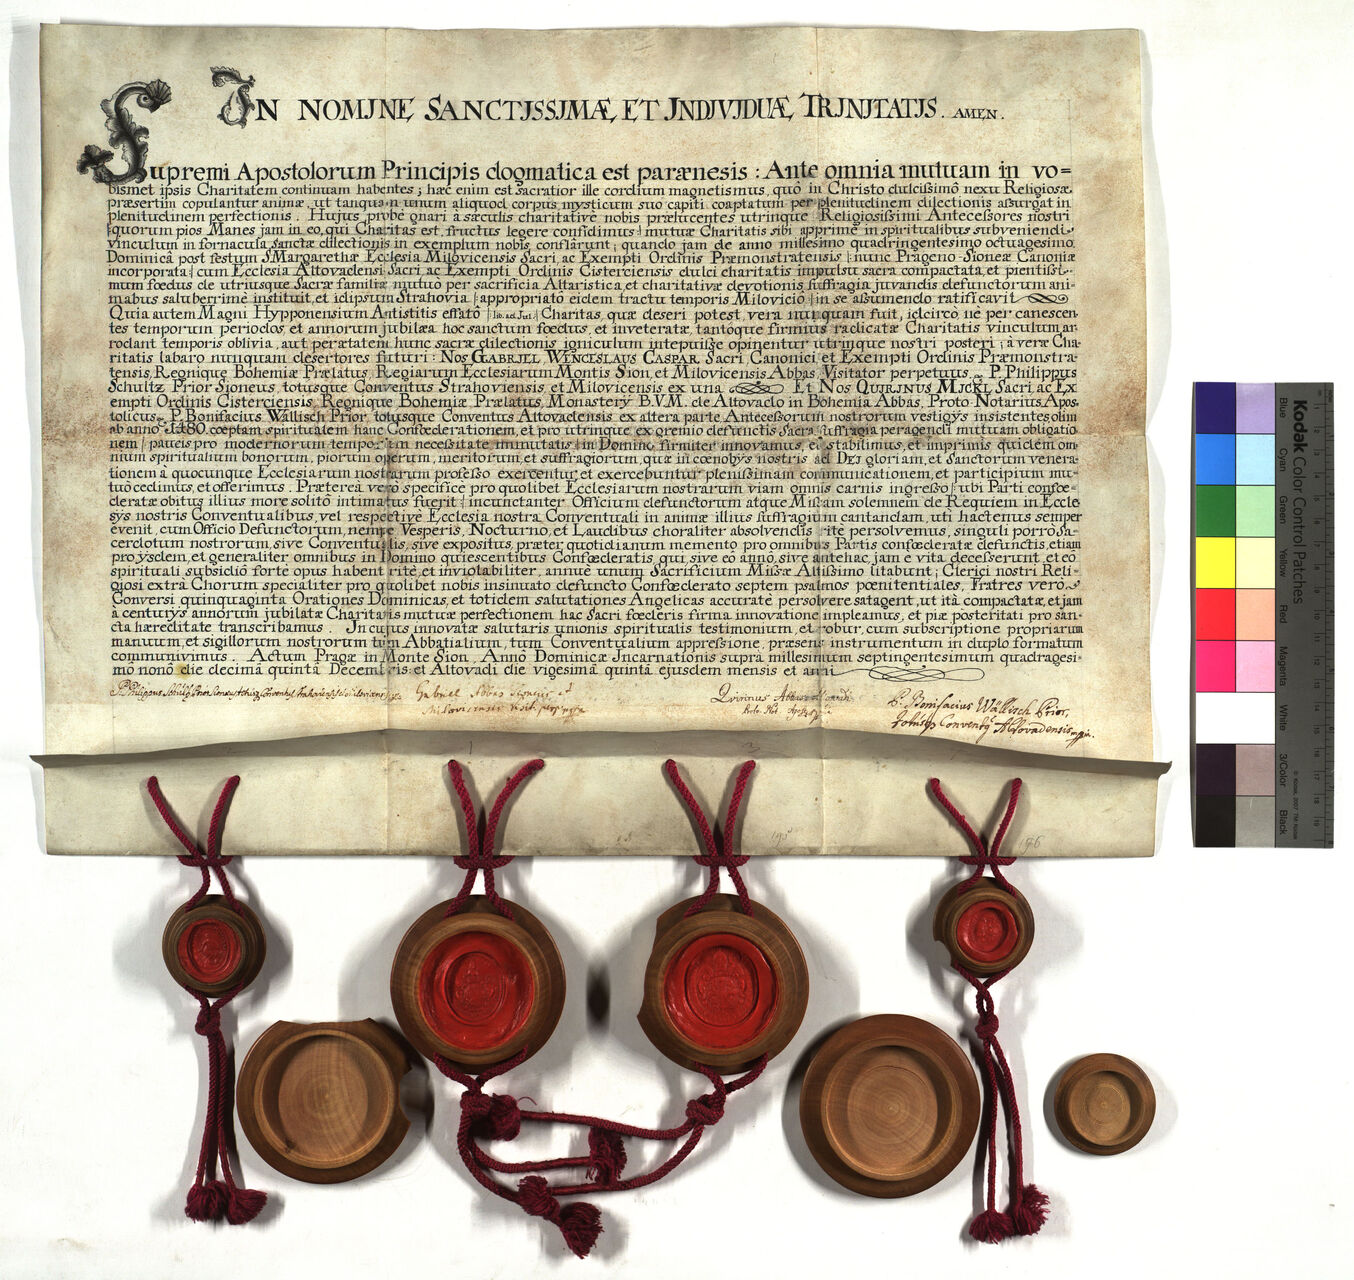 IN NOMINE SANCTISSIMÆ ET INDIVIDUÆ TRINITATIS. AMEN.
Supremi Apostolorum Principis dogmatica est parænesis : Ante omnia mutuam in vo=
bismet ipsis Charitatem continuam habentes ; hæc enim est sacratior ille cordium magnetismus, quô in Christo dulcissimô nexu Religiosæ
præsertim copulantur animæ, ut tanquam unum aliquod corpus mysticum suo capiti coaptatum per plenitudinem dilectionis assurgat in
plenitudinem perfectionis. Hujus probè gnari à sæculis charitativè nobis prælucentes utrinque Religiosissimi Antecessores nostri
quorum pios Manes jam in eo, qui Charitas est, fructus legere confidimus mutuæ Charitatis sibi apprimè in spiritualibus subveniendi
vinculum in fornacula sanctæ dilectionis in exemplum nobis conflârunt ; quando jam de anno millesimo quadringentesimo octuagesimo
Dominicâ post festum S. Margarethæ Ecclesia Milovicensis Sacri, ac Exempti Ordinis Præmonstratensis nunc Prageno-Sioneæ Canoniæ
incorporata cum Ecclesia Altovadensi Sacri ac Exempti Ordinis Cisterciensis dulci charitatis impulsu sacra compactata, et pientissi-
mum fœdus de utriusque Sacræ familiæ mutuò per sacrificia Altaristica, et charitativæ devotionis suffragia juvandis defunctorum ani-
mabus saluberrimè instituit, et idipsum Strahovia appropriatô eidem tractu temporis Miloviciô in se assumendo ratificavit
Quia autem Magni Hypponensium Antistitis effatô lib. ad Jul. Charitas, quæ deseri potest, vera nunquam fuit, idcircò ne per canescen-
tes temporum periodos et annorum jubilæa hoc sanctum fœdus, et inveteratæ, tantòque firmius radicatæ Charitatis vinculum ar-
rodant temporis oblivia, aut per ætatem hunc sacræ dilectionis igniculum intepuisse opinentur utrinque nostri posteri ; à veræ Cha-
ritatis labaro nunquam desertores futuri : NOS GABRIEL WENCESLAUS CASPAR Sacri, Canonici, et Exempti Ordinis Præmonstra-
tensis, Regnique Bohemiæ Prælatus, Regiarum Ecclesiarum Montis Sion, et Milovicensis Abbas, Visitator perpetuus P. Philippus
Schultz Prior Sioneus, totusque Conventus Strahoviensis et Milovicensis ex una Et NOS QUIRINUS MICKL Sacri, ac Ex
empti Ordinis Cisterciensis, Regnique Bohemiæ Prælatus, Monastery B.V.M. de Altovado in Bohemia Abbas, Proto-Notarius Apos-
tolicus P. Bonifacius Wallisch Prior, totusque Conventus Altovadensis ex altera parte Antecessorum nostrorum vestigÿs insistentes olim
ab anno 1480. cœptam spiritualem hanc Confœderationem, et pro utrinque ex gremio defunctis Sacra suffragia peragendi mutuam obligatio
nem paucis pro modernorum temporum necessitate immutatis in Domino firmiter innovamus, et stabilimus, et imprimis quidem om-
nium spiritualium bonorum, piorum operum, meritorum, et suffragiorum, quæ in cœnobÿs nostris ad DEI gloriam, et Sanctorum venera-
tionem à quocunque Ecclesiarum nostrarum professo exercentur, et exercebuntur plenissimam communicationem, et participium mu-
tuò cedimus, et offerimus. Prætereà verò specificè pro quolibet Ecclesiarum nostrarum viam omnis carnis ingresso ubi Parti confœ-
deratæ obitus illius more solitô intimatus fuerit incunctanter Officium defunctorum atque Missam solemnem de Requiem in Eccle
sÿs nostris Conventualibus, vel respectivè Ecclesia nostra Conventuali in animæ illius suffragium cantandam, uti hactenus semper
evenit, cum Officio Defunctorum, nempe Vesperis, Nocturno, et Laudibus choraliter absolvendis ritè persolvemus, singuli porrò Sa-
cerdotum nostrorum, sive Conventualis, sive expositus, præter quotidianum memento pro omnibus Partis confœderatæ defunctis, etiam
pro ÿsdem, et generaliter omnibus in Domino quiescentibus Confœderatis, qui, sive eo annô, sive antehac, jam è vita decesserunt, et eô
spirituali subsidiô forte opus habent ritè, et inviolabiliter, annue unum Sacrificium Missæ Altissimo litabunt ; Clerici nostri Reli-
giosi extrà Chorum specialiter pro quolibet nobis insinuato defuncto Confœderato septem psalmos pœnitentiales, Fratres verò
Conversi quinquaginta Orationes Dominicas, et totidem salutationes Angelicas accuratè persolvere satagent, ut ità compactatæ, et jam
à centurÿs annorum jubilatæ Charitatis mutuæ perfectionem hac Sacri fœderis firma innovatione impleamus, et piæ posteritati pro san-
cta hæreditate transcribamus. In cujus innovatæ salutaris unionis spiritualis testimonium, et robur, cum subscriptione propriarum
manuum, et sigillorum nostrorum tum Abbatialium, tum Conventualium appressione, præsens instrumentum in duplo formatum
communivimus. Actum Pragæ in Monte Sion, Annô Dominicæ Incarnationis suprà millesimum septingentesimum quadragesi-
mo nonô die decima quintâ Decembris: et Altovadi die vigesimâ quintâ ejusdem mensis et anni
P. Philippus Schultz Prior
Gabriel Abbas
Milovicensis Visit. perp.
Quirinus Abbas
Proto Not.
P. Bonifacius Wallisch Prior,
totusq Conventq Altovadensis mpia.
196
Kodak Color Control Patches
Blue Cyan Green Yellow Red Magenta White 3/Color Black
© Kodak, 2007 TM: Kodak